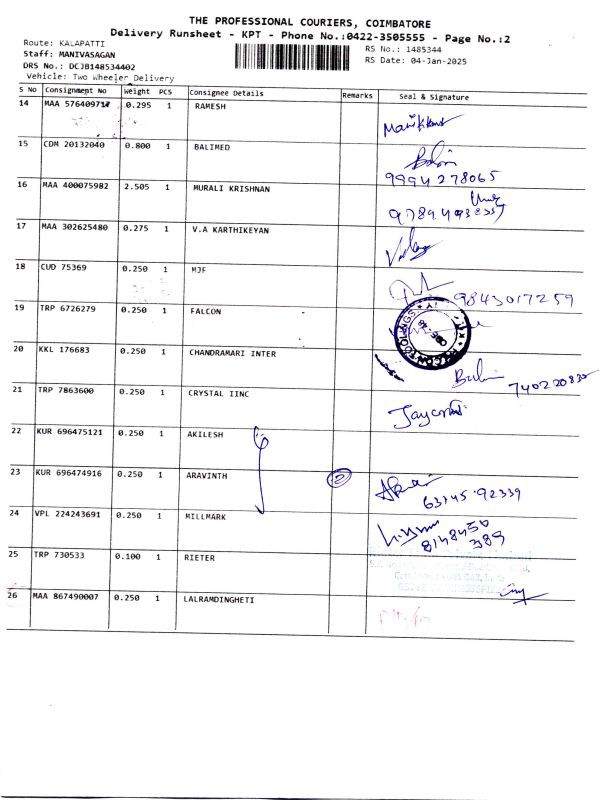 THE PROFESSIONAL COURIERS, COIMBATORE
Delivery Runsheet - KPT - Phone No.:0422-3505555 - Page No.:2
Route: KALAPATTI
Staff: MANIVASAGAN
DRS No.: DCJB148534402
Vehicle: Two Wheeler Delivery
RS No.: 1485344
RS Date: 04-Jan-2025
S No Consignment No Weight PCS Consignee Details Remarks Seal & Signature
14 MAA 576409717 0.295 1 RAMESH
15 CDM 20132040 0.800 1 BALIMED
9994278065
16 MAA 400075982 2.505 1 MURALI KRISHNAN
17 MAA 302625480 0.275 1 V.A KARTHIKEYAN
18 CUD 75369 0.250 1 MJF
9843017259
19 TRP 6726279 0.250 1 FALCON
20 KKL 176683 0.250 1 CHANDRAMARI INTER
740220830
21 TRP 7863600 0.250 1 CRYSTAL IINC
22 KUR 696475121 0.250 1 AKILESH
23 KUR 696474916 0.250 1 ARAVINTH
2
63745 92339
24 VPL 224243691 0.250 1 MILLMARK
8148450
389
25 TRP 730533 0.100 1 RIETER
26 MAA 867490007 0.250 1 LALRAMDINGHETI